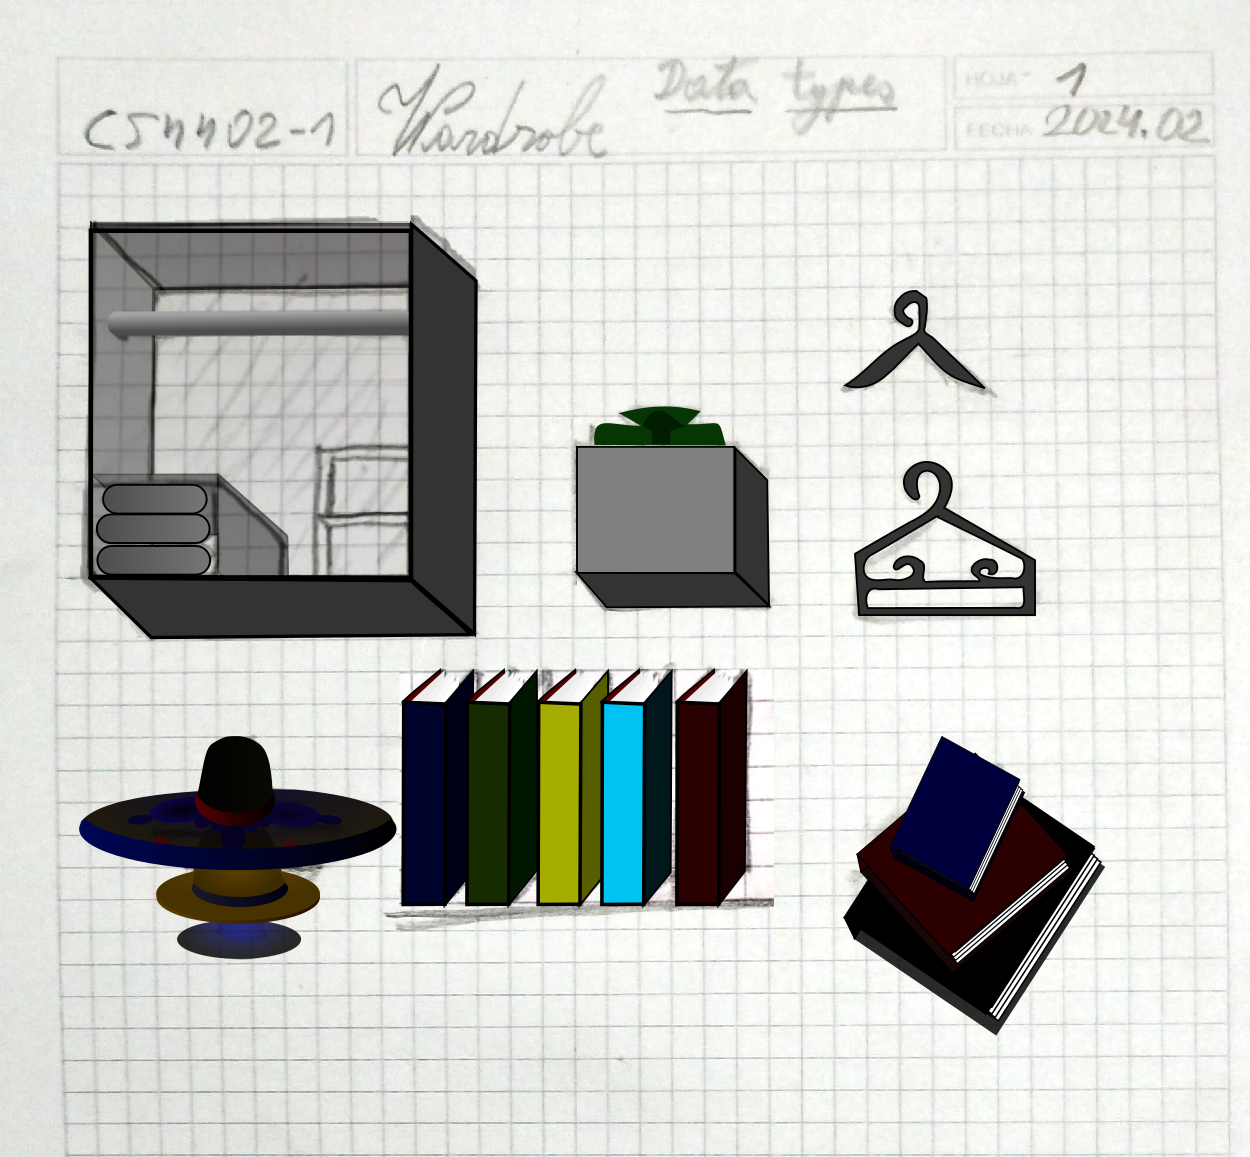 CS4402-1
Wardrobe
Data types
HOJA Nº 1
FECHA 2024.02